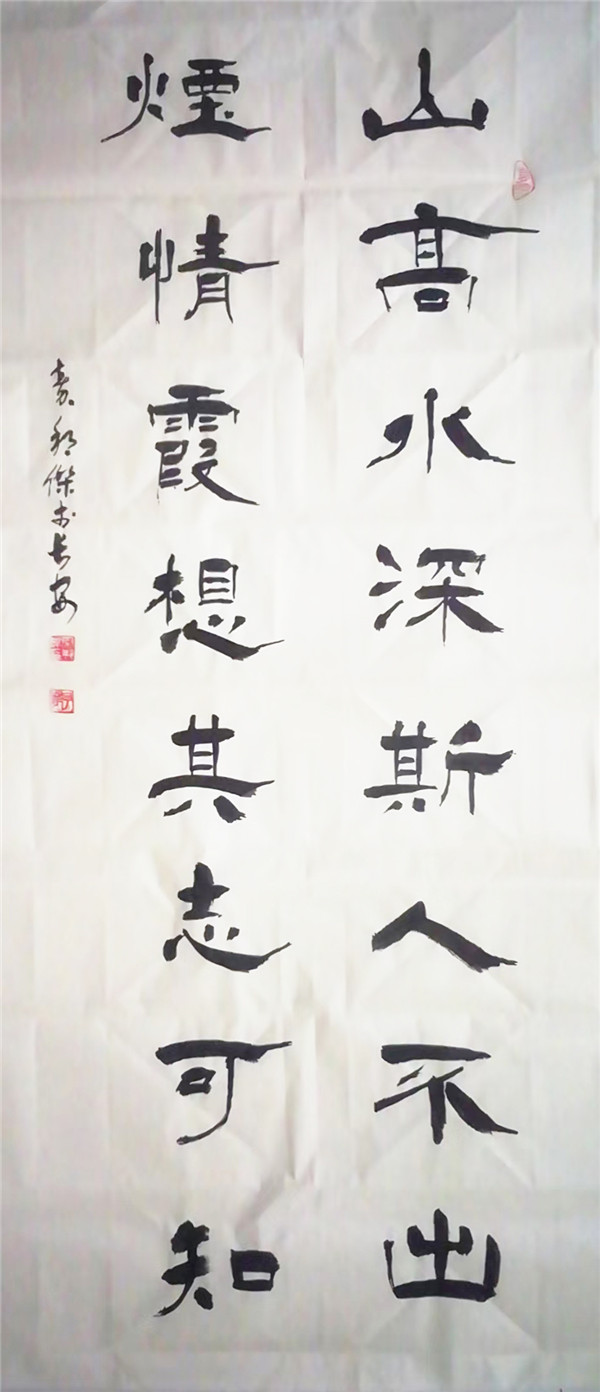 山高水深斯人不出
煙情霞想其志可知
傑书长安